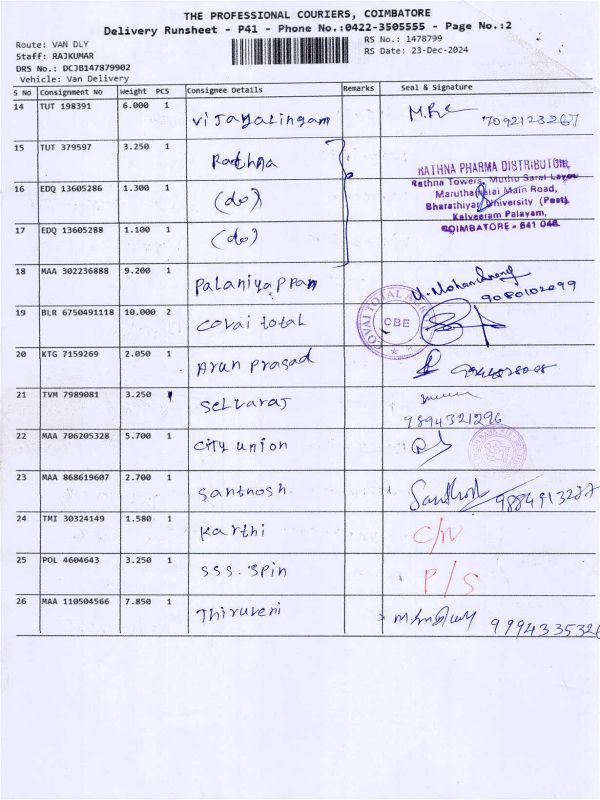 THE PROFESSIONAL COURIERS, COIMBATORE
Delivery Runsheet - P41 - Phone No.:0422-3505555 - Page No.:2
Route: VAN DLY
Staff: RAJKUMAR
DRS No.: DCJB147879902
Vehicle: Van Delivery
RS No.: 1478799
RS Date: 23-Dec-2024
S No Consignment No Weight PCS Consignee Details Remarks Seal & Signature
14 TUT 198391 6.000 1 Vijayalingam 7092123267
15 TUT 379597 3.250 1 Rathna
16 EDQ 13605286 1.300 1 (do)
17 EDQ 13605288 1.100 1 (do)
RATHNA PHARMA DISTRIBUTOR
Rathna Towers, Muthu Sarai Layou
Maruthamalai Main Road,
Bharathiyar University (Post)
Kalveeram Palayam,
COIMBATORE - 641 046
18 MAA 302236888 9.200 1 Palaniyappan 9080102099
19 BLR 6750491118 10.000 2 covai total
COVAI TOTAL
CBE
20 KTG 7159269 2.050 1 Arun Prasad
21 TVM 7989081 3.250 Selvaraj
9894321296
22 MAA 706205328 5.700 1 City union
23 MAA 868619607 2.700 1 Santhosh. Santhosh
24 TMI 30324149 1.580 1 Karthi C/N
25 POL 4604643 3.250 1 SSS. Spin P/S
26 MAA 110504566 7.850 1 Thiruveni 9994335326